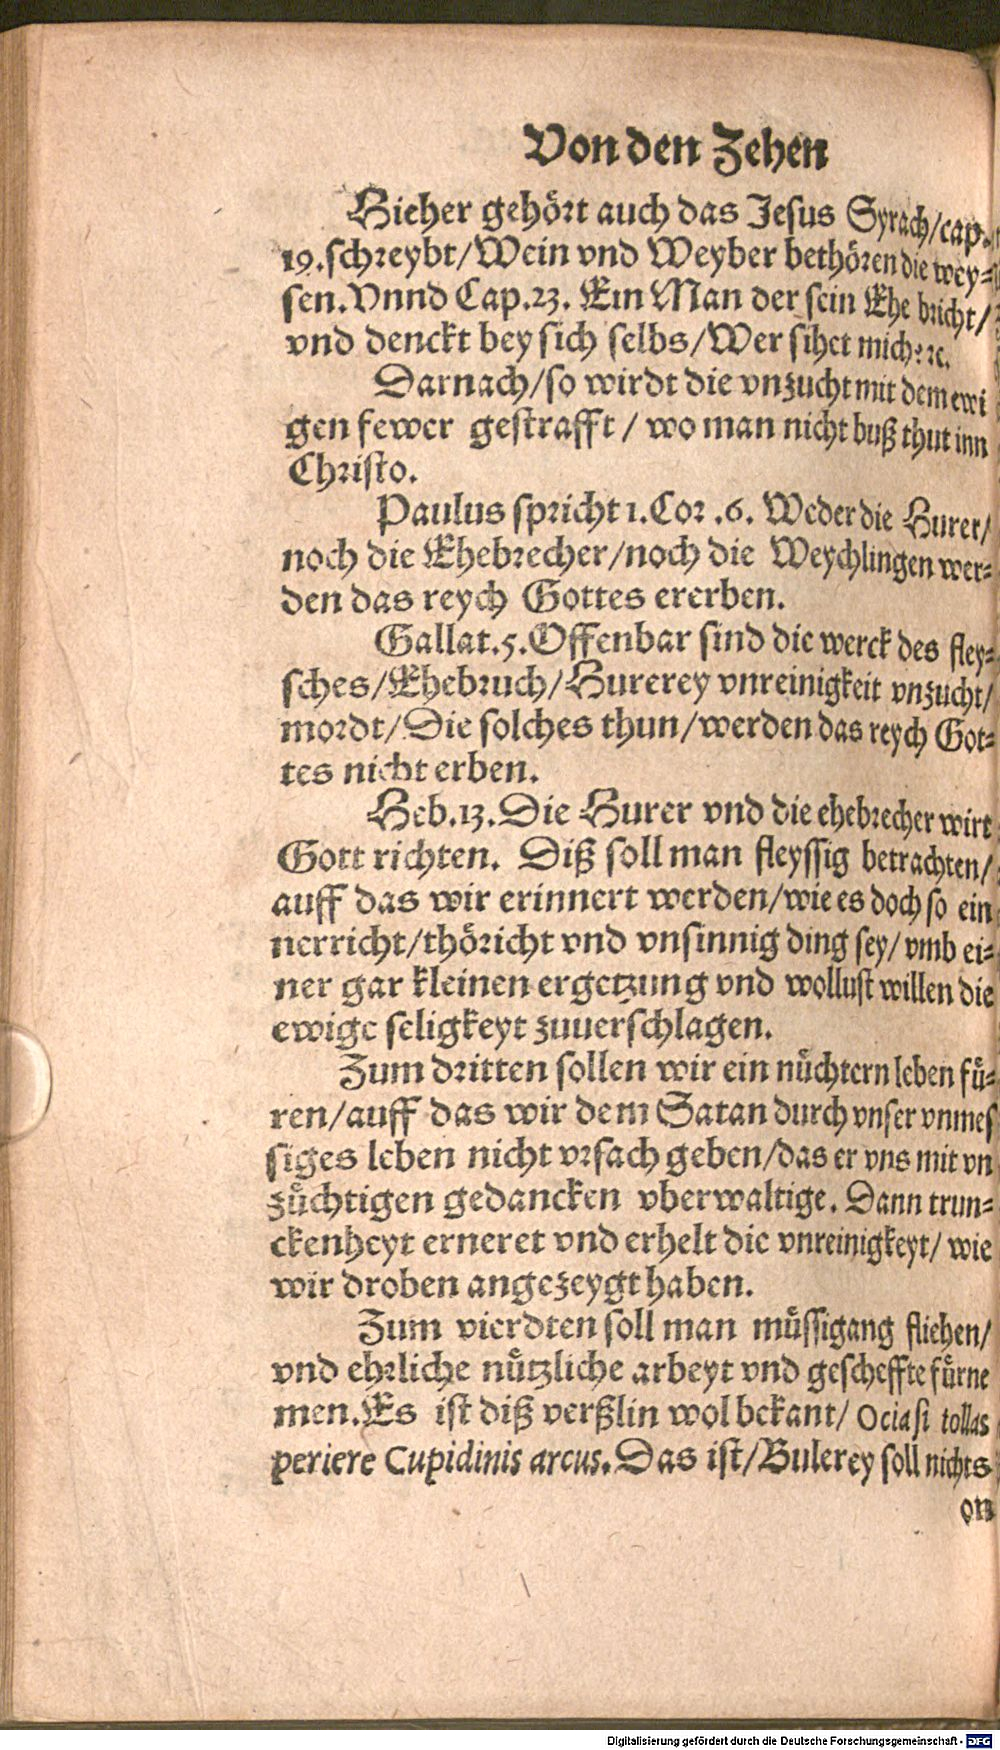 Von den Zehen
Hieher gehört auch das Jesus Syrach/cap.
19.schreybt/Wein vnd Weyber bethören die wey=
sen.Vnnd Cap.23. Ein Man der sein Ehe bricht/
vnd denckt bey sich selbs/Wer sihet mich?ꝛc.
Darnach/so wirdt die vnzucht mit dem ewi
gen fewer gestrafft / wo man nicht buß thut inn
Christo.
Paulus spricht 1.Cor .6. Weder die Hurer/
noch die Ehebrecher/noch die Weychlingen wer=
den das reych Gottes ererben.
Gallat.5.Offenbar sind die werck des fley=
sches/Ehebruch/Hurerey vnreinigkeit vnzucht/
mordt/Die solches thun/werden das reych Got=
tes nicht erben.
Heb.13.Die Hurer vnd die ehebrecher wirt
Gott richten. Diß soll man fleyssig betrachten/
auff das wir erinnert werden/wie es doch so ein
nerricht/thöricht vnd vnsinnig ding sey/vmb ei=
ner gar kleinen ergetzung vnd wollust willen die
ewige seligkeyt zuuerschlagen.
Zum dritten sollen wir ein nüchtern leben fü=
ren/auff das wir dem Satan durch vnser vnmes
siges leben nicht vrsach geben/das er vns mit vn
züchtigen gedancken vberwaltige. Dann trun=
ckenheyt erneret vnd erhelt die vnreinigkeyt/ wie
wir droben angezeygt haben.
Zum vierdten soll man müssigang fliehen/
vnd ehrliche nützliche arbeyt vnd gescheffte fürne
men.Es ist diß verßlin wol bekant/ Ocia si tollas
periere Cupidinis arcus.Das ist/Bulerey soll nichts
on
Digitalisierung gefördert durch die Deutsche Forschungsgemeinschaft - DFG